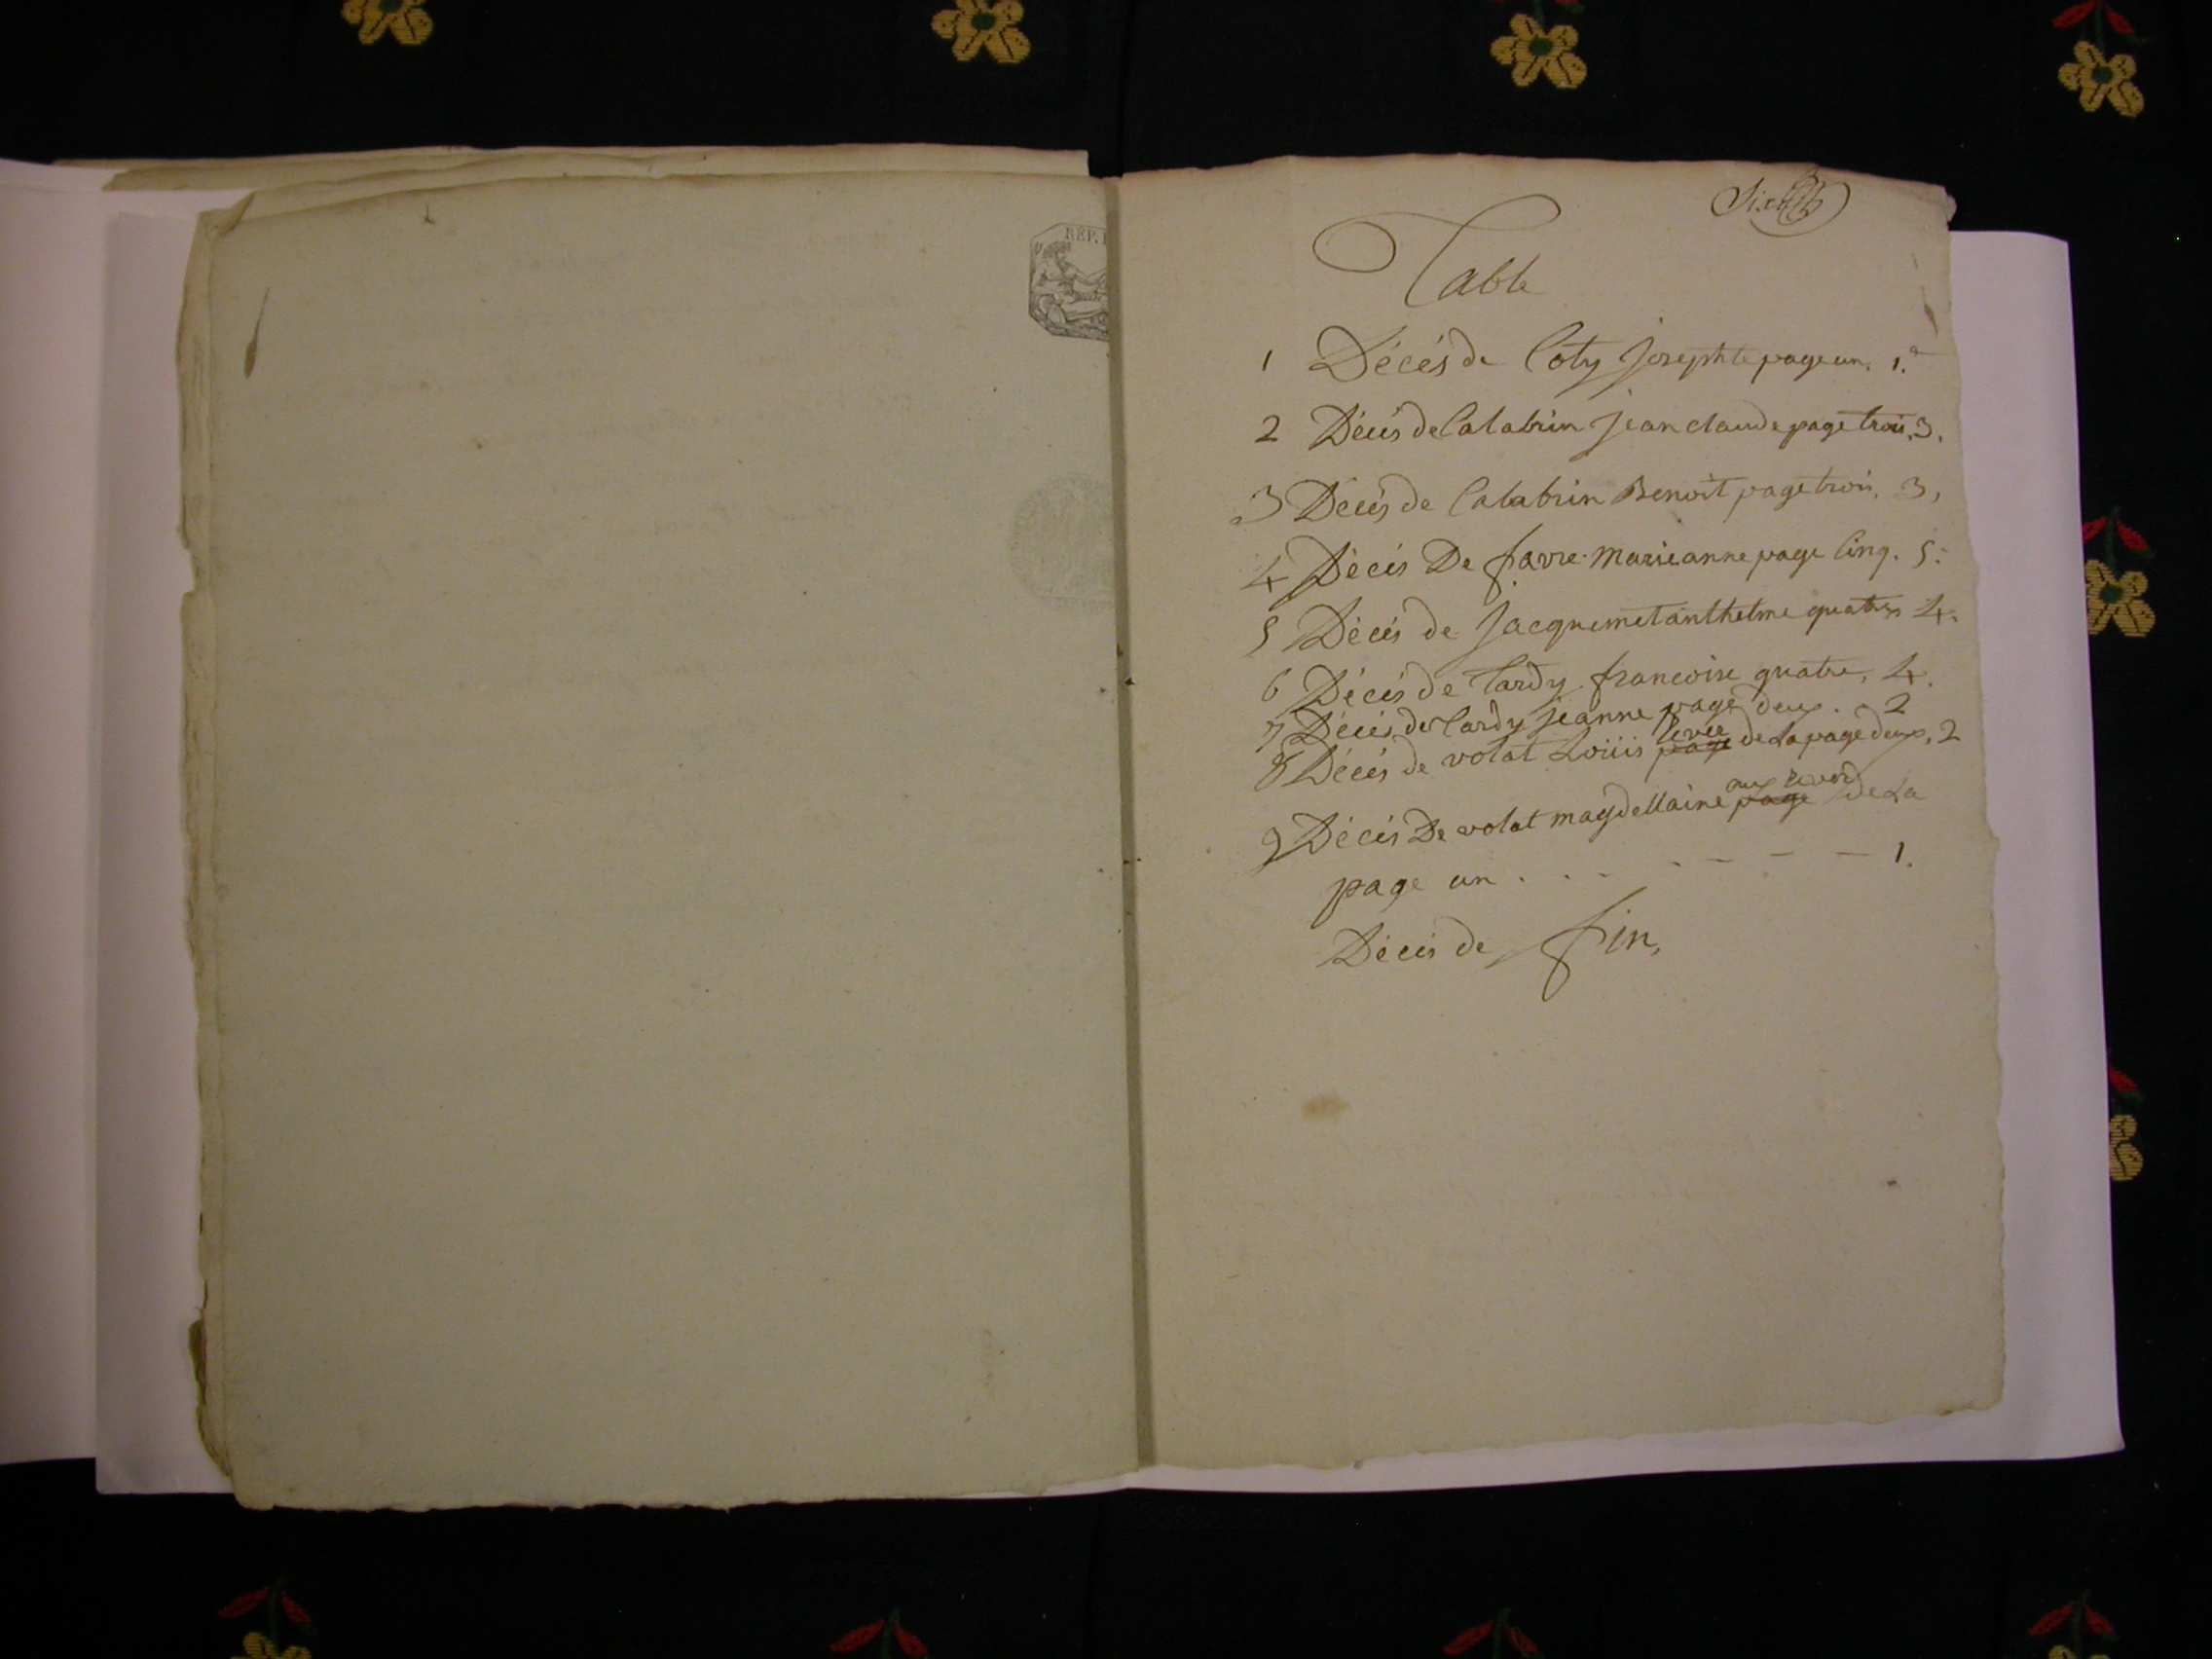 REP.
Six
Table
1 Décés de Coty Josephte page un. 1.
2 Décés de Calabrin Jean claude page trois, 3.
3 Décés de Calabrin Benoit page trois, 3,
4 Décés De favre marieanne page Cinq. 5.
5 Décés de Jacquemet anthelme quatre 4.
6 Décés de Tardy francoise quatre, 4.
7 Décés de Tardy jeanne page deux. 2
8 Décés de volat Loüis page de La page deux, 2
9 Décés De volat magdellaine aux page de La
page un . . . - - - - 1.
Décés de fin,